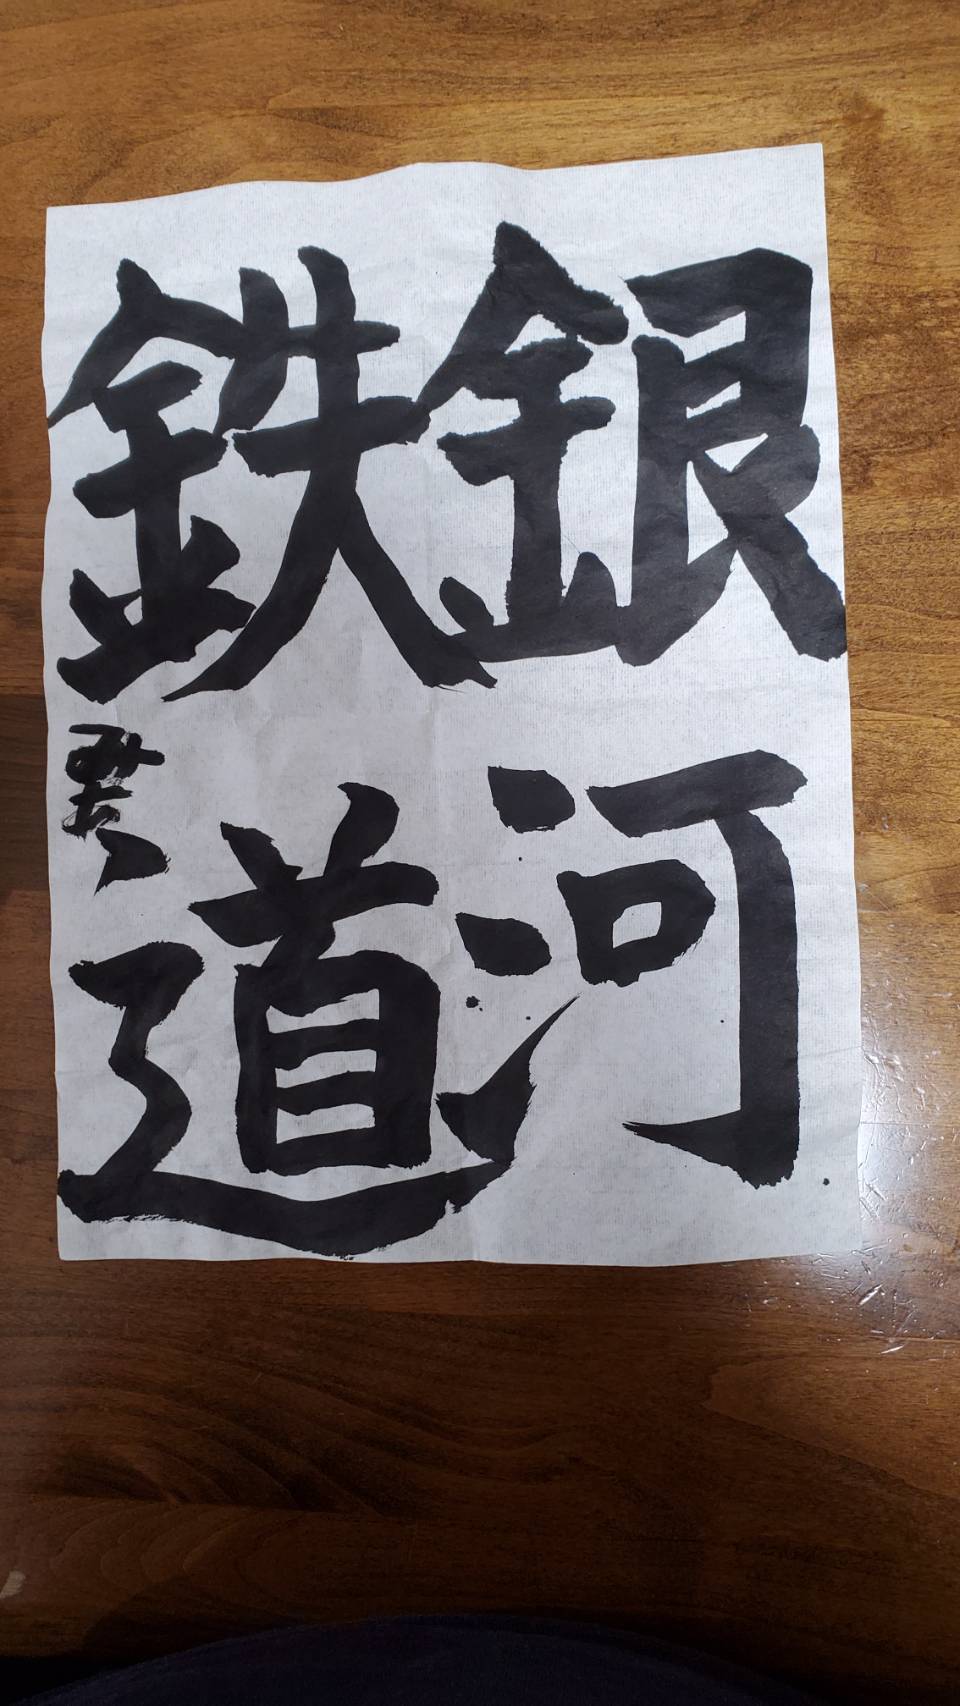 銀河
鉄道